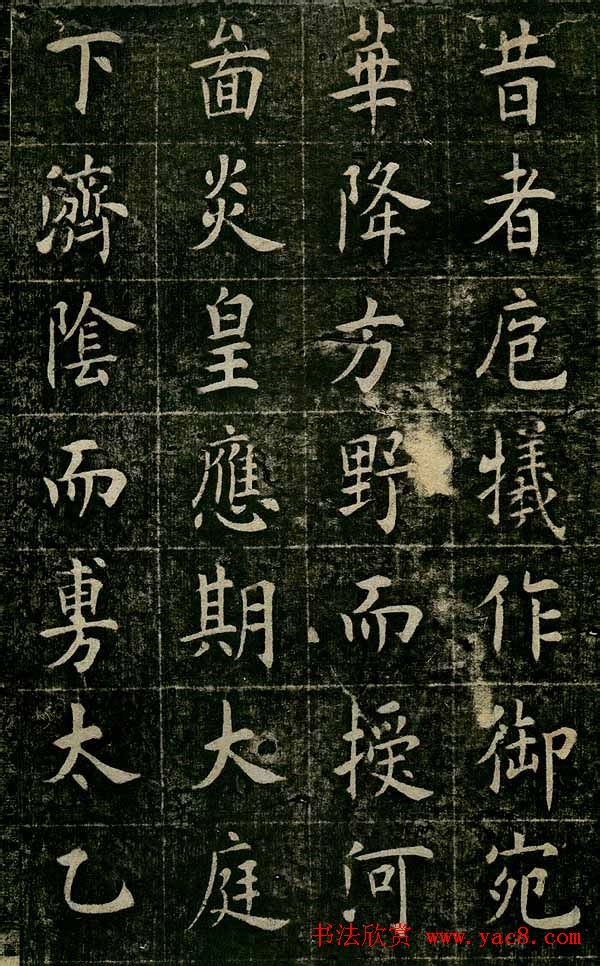 昔者庖犧作御宛
華降方野而授河
啚炎皇應期大庭
下濟陰而旉太乙
书法欣赏 www.yac8.com